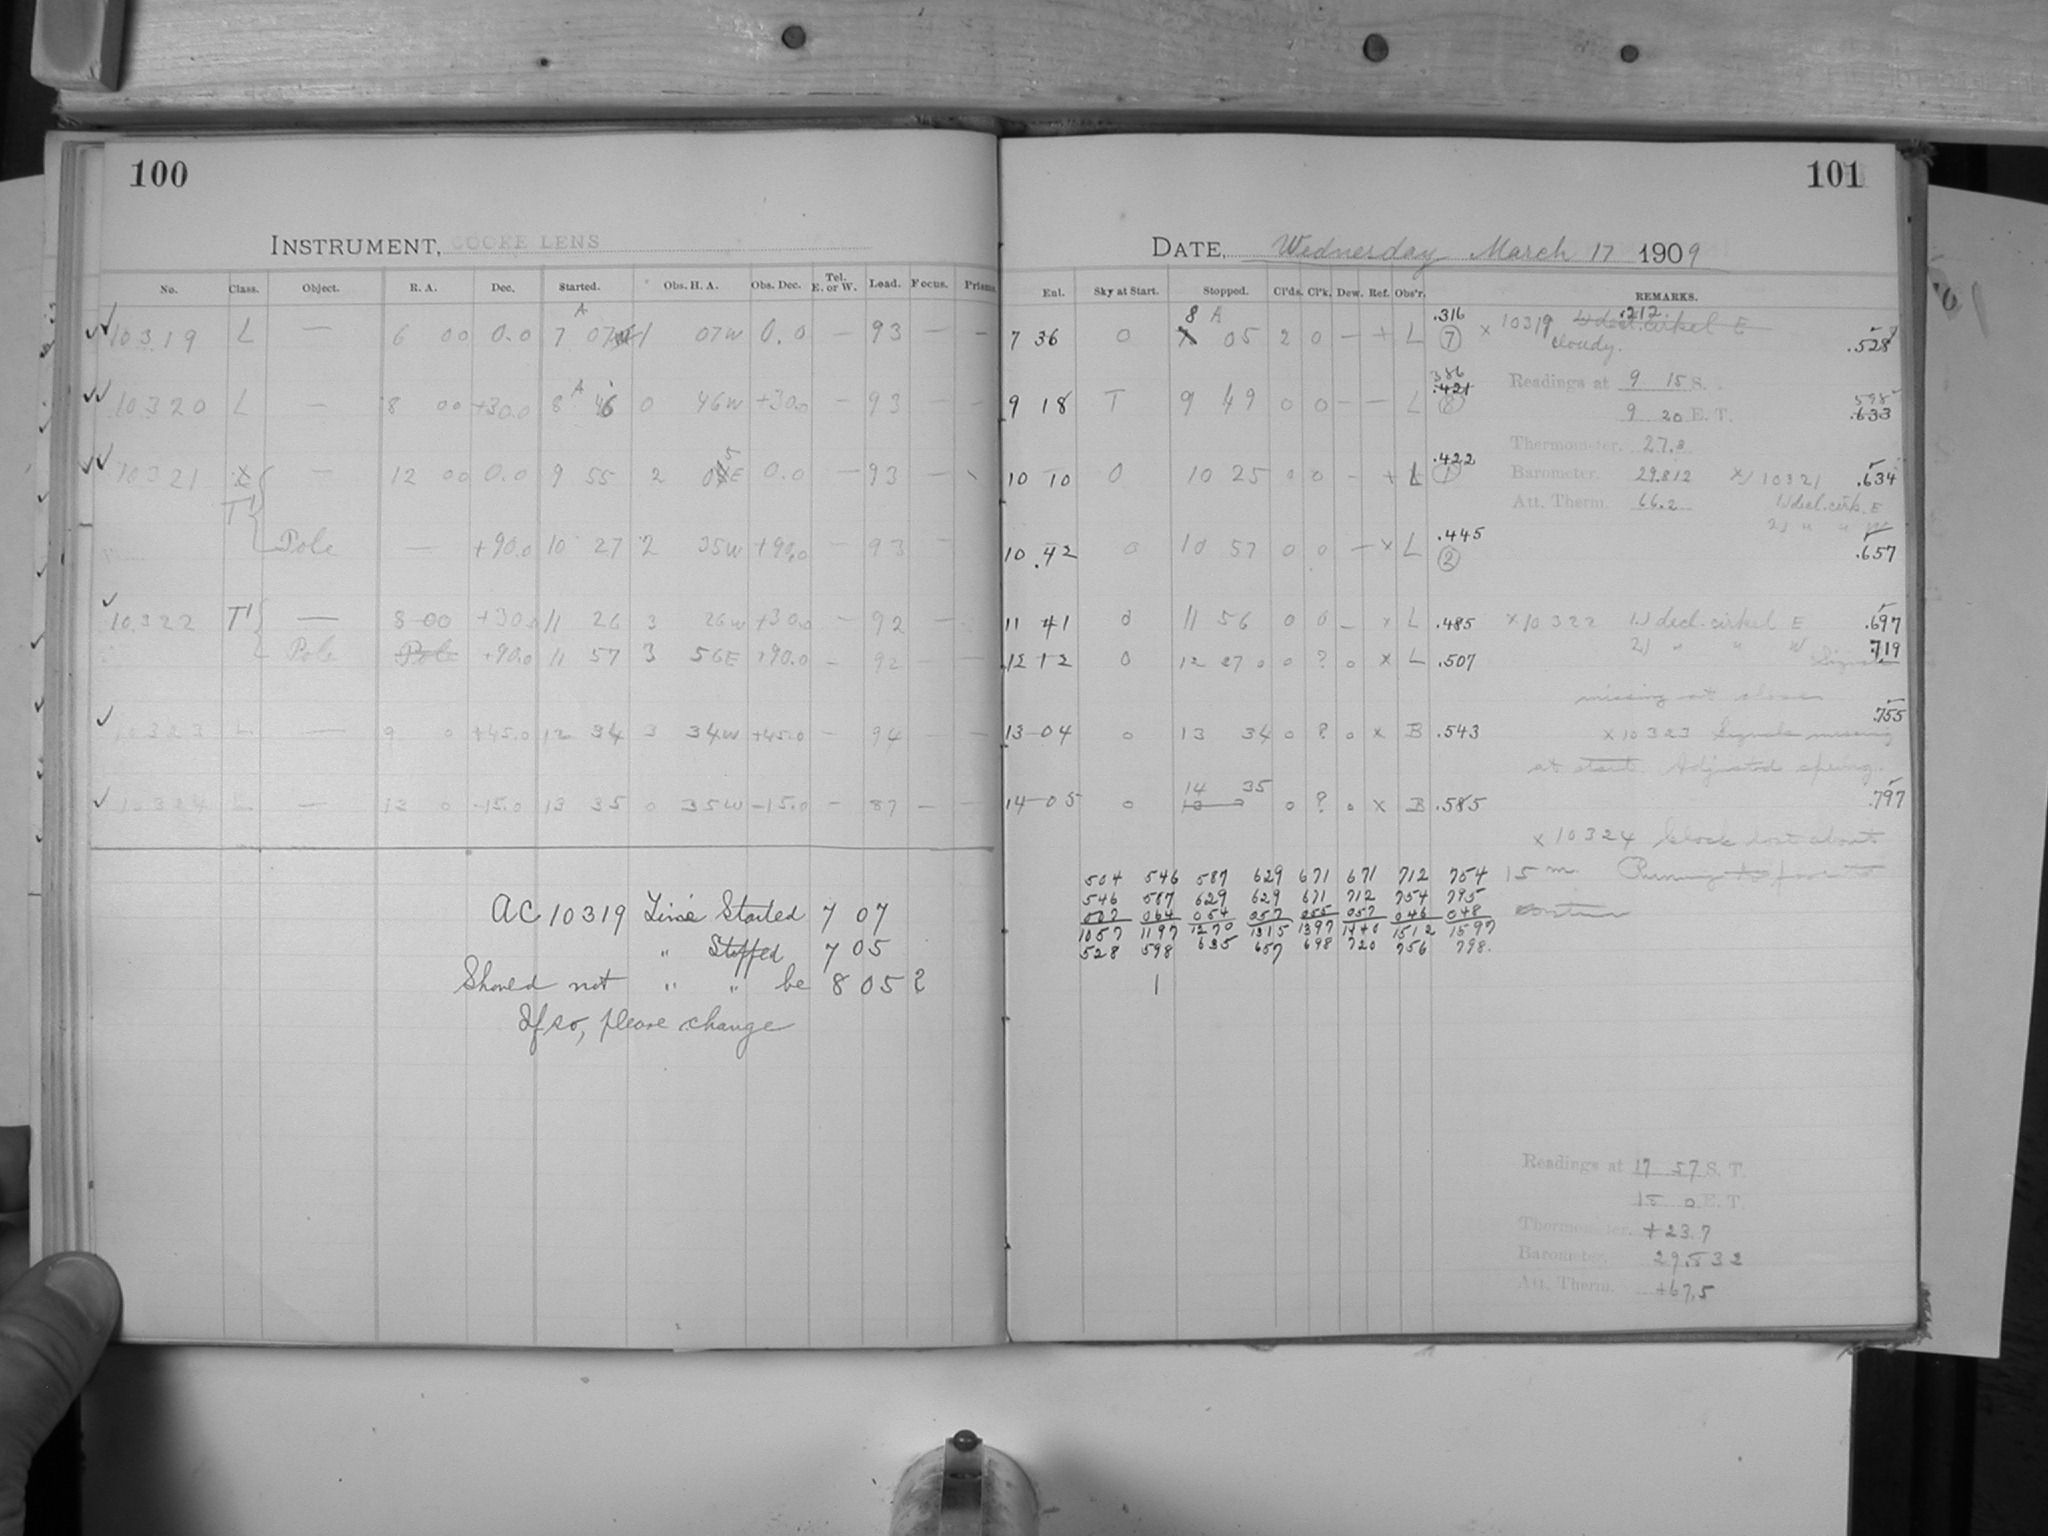 100
INSTRUMENT, COOKE LENS
No. Class. Object. R. A. Dec. Started. Obs. H. A. Obs. Dec. Tel. E. or W. Lead. Focus. Prisms.
10319 L — 6 00 0.0 7 07 1 07W 0.0 — 93 — —
10320 L — 8 00 +30.0 8 46 0 46W +30.0 — 93 — —
10321 — 12 00 0.0 9 55 2 05E 0.0 — 93 —
T'
Pole — +90.0 10 27 2 35W +90.0 — 93 —
10322 T' — 8 00 +30.0 11 26 3 26W +30.0 — 92 —
Pole Pole +90.0 11 57 3 56E +90.0 — 92 —
10323 L — 9 0 +45.0 12 34 3 34W +45.0 — 94 — —
10324 L — 13 0 -15.0 13 35 0 35W -15.0 — 87 — —
AC 10319 Time Started 7 07
" Stopped 7 05
Should not " " be 8 05?
If so, please change
101
DATE, Wednesday March 17 1909
Ent. Sky at Start. Stopped. Cl'ds. Cl'k. Dew. Ref. Obs'r. REMARKS.
8 A .316 .212
7 36 0 05 2 0 — + L 7 x 10319 1) decl. cirkel E .528
cloudy.
386
Readings at 9 15 S.
9 18 T 9 49 0 0 — — L .421 8 598
9 20 E. T. .633
Thermometer. 27.3
.422
10 10 0 10 25 0 0 — + L 1 Barometer. 29.812 x) 10321 .634
Att. Therm. 66.2 1) decl. cirk. E
2) " " W
.445
10 42 0 10 57 0 0 — x L 2 .657
11 41 0 11 56 0 0 — x L .485 x 10322 1) decl. cirkel E .697
2) " " W .719
12 12 0 12 27 0 0 ? 0 x L .507 Signals
missing at close
.755
13 04 0 13 34 0 ? 0 x B .543 x 10323 Signals missing
at start. Adjusted spring.
14 35
14 05 0 0 ? 0 x B .585 .797
x 10324 Clock lost about
15 m. Running
504 546 587 629 671 671 712 754
546 587 629 629 671 712 754 795
007 064 054 057 055 057 046 048
1057 1197 1270 1315 1397 1440 1512 1597
528 598 635 657 698 720 756 798.
1
Readings at 17 57 S. T.
15 0 E. T.
Thermometer. +23.7
Barometer. 29.532
Att. Therm. +67.5